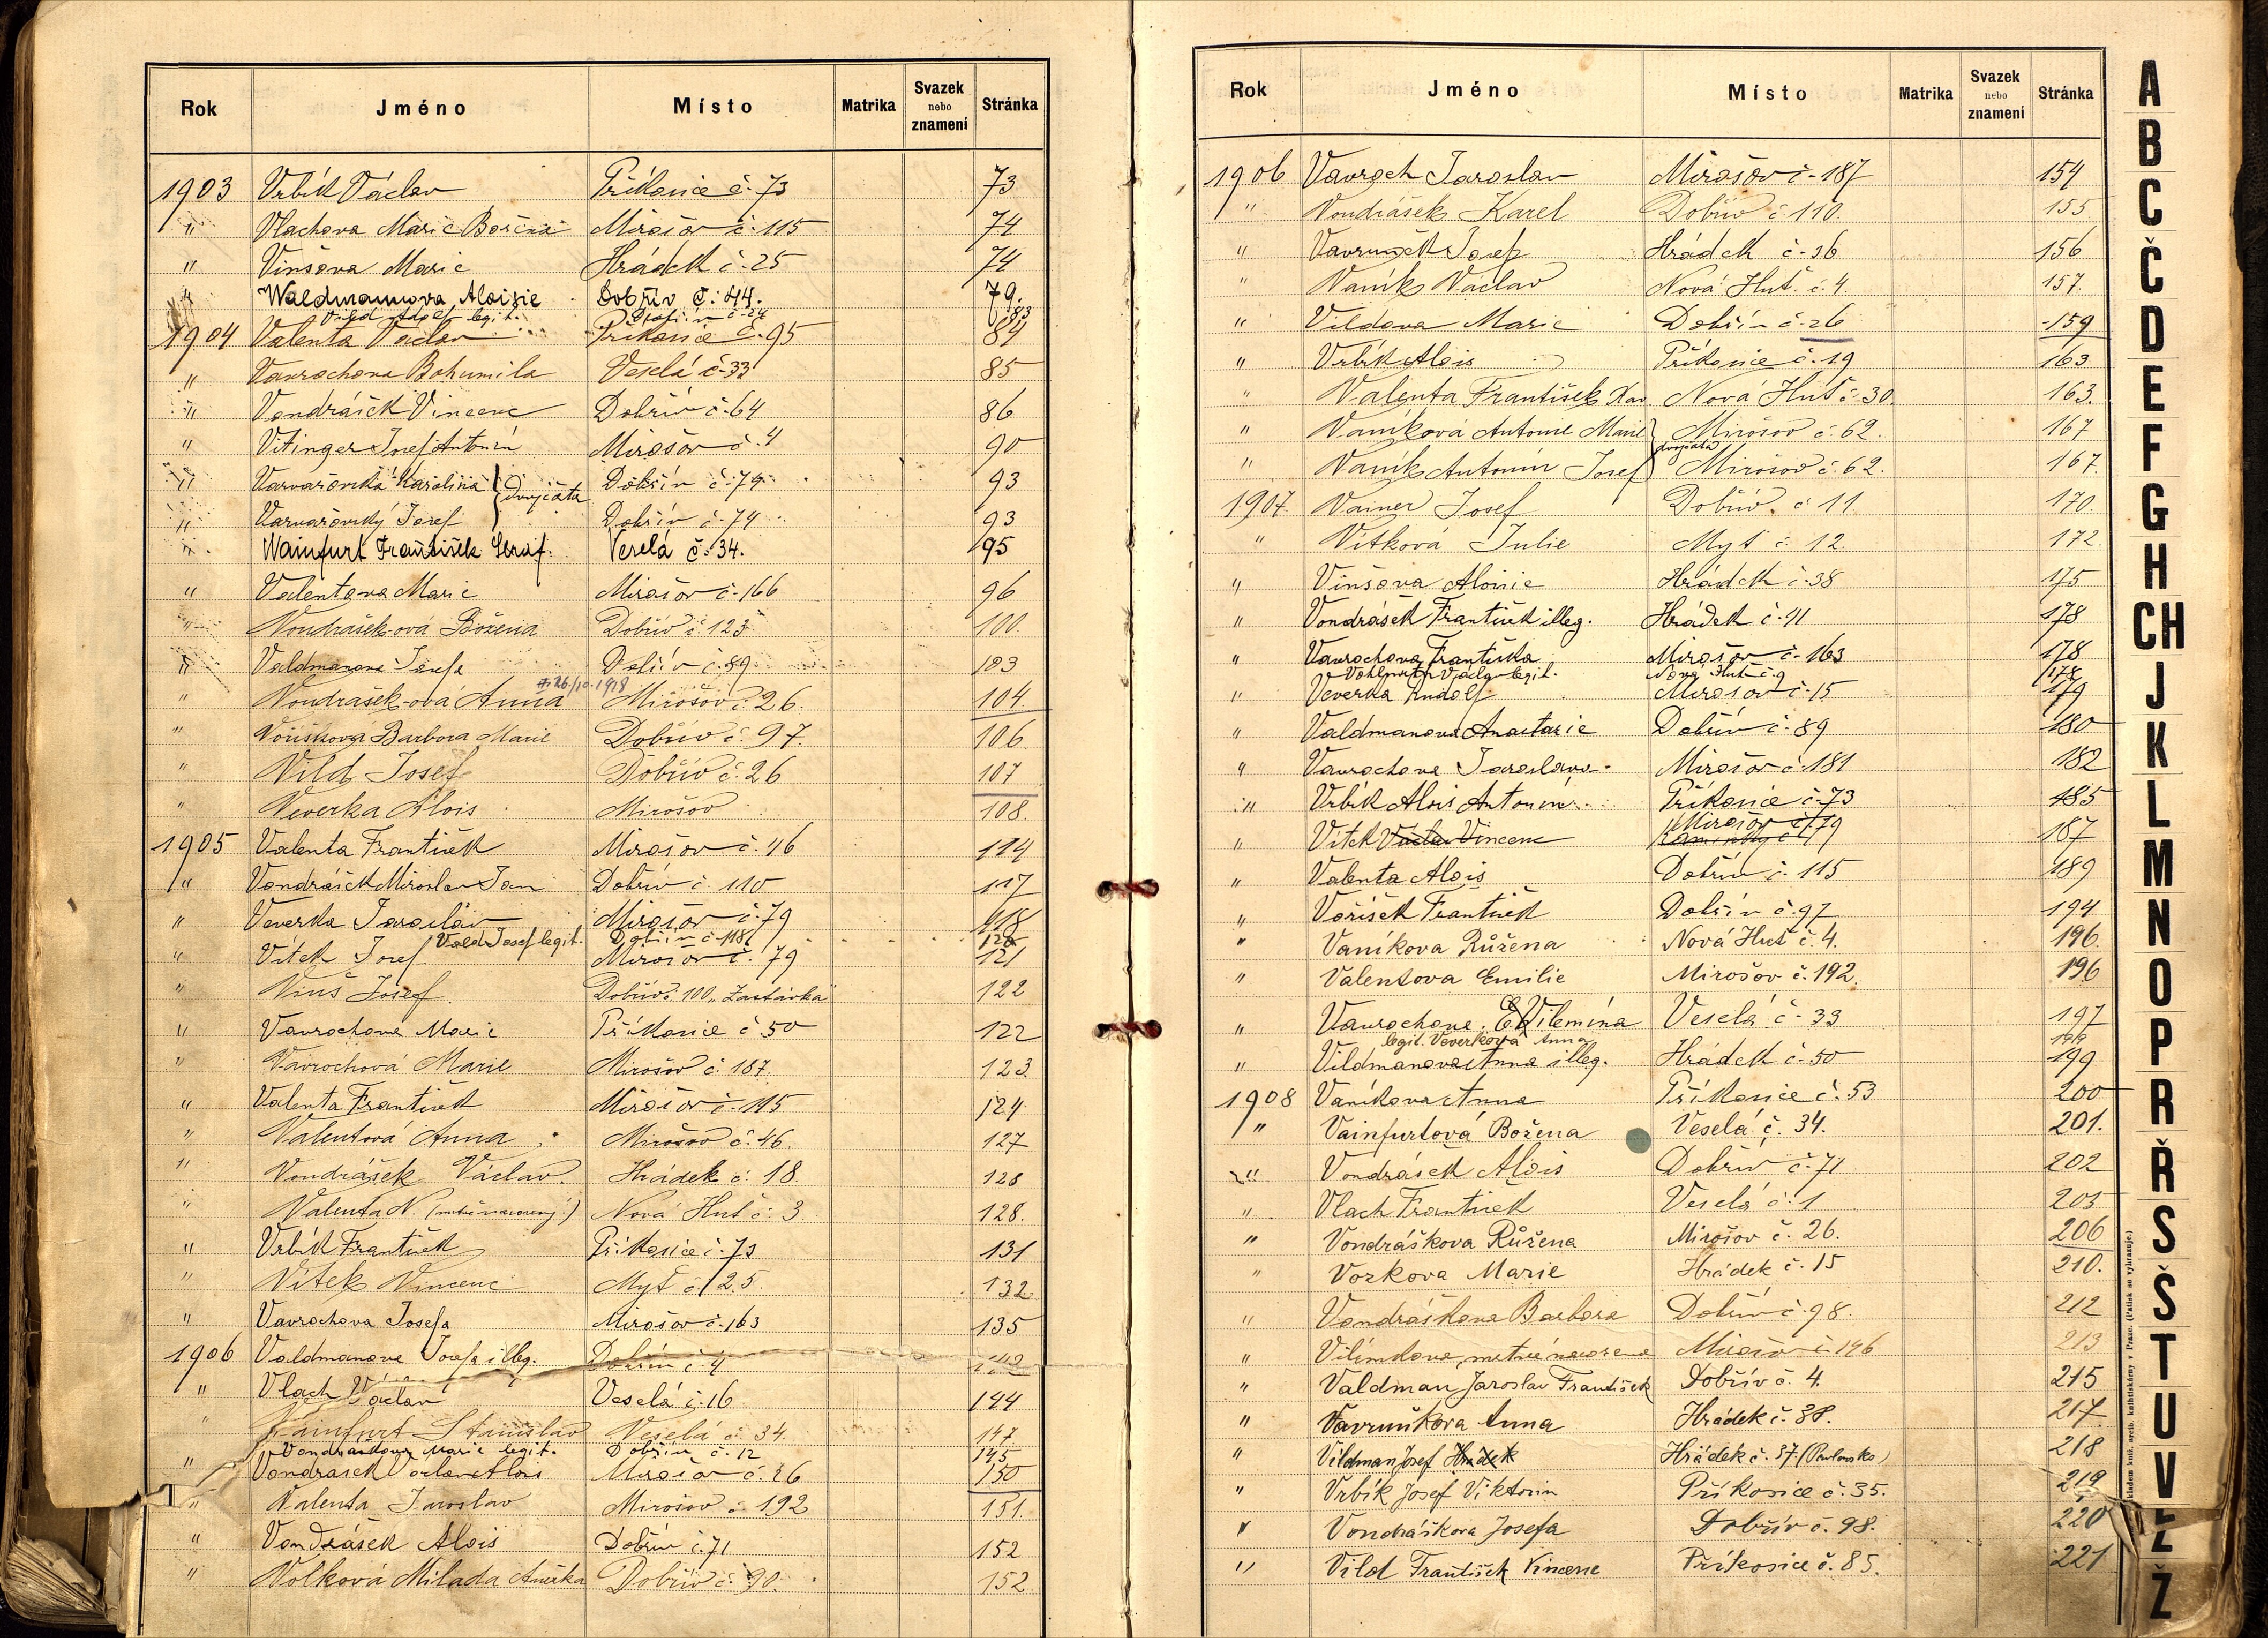 Rok Jméno Místo Matrika Svazek nebo znamení Stránka
1903 Vrbík Václav Příkosice č. 73 73
" Vlachova Marie Mirošov č. 115 74
" Vinšova Marie Hrádek č. 25 74
" Waldmannova Aloisie Dobřív č. 44. 79.
Vild Adolf legit. Dobřív č. 24 83
1904 Valenta Václav Příkosice č. 95 84
" Vavrochova Bohumila Veselá č. 33 85
" Vondrášek Vincenc Dobřív č. 64 86
" Vitinger Josef Antonín Mirošov č. 4 90
" Varvařovská Karolina dvojčata Dobřív č. 74 93
" Varvařovský Josef Dobřív č. 74 93
" Wainfurt František Seraf. Veselá č. 34. 95
" Valentova Marie Mirošov č. 166 96
" Vondrašek-ová Božena Dobřív č. 123 100.
" Valdmanova Josefa Dobřív č. 89 103
26/10.1918
" Vondrašek-ová Anna Mirošov č. 26. 104.
" Voříšková Barbora Marie Dobřív č. 97. 106
" Vild Josef Dobřív č. 26 107
" Veverka Alois Mirošov 108.
1905 Valenta František Mirošov č. 46 114
" Vondrášek Miroslav Jan Dobřív č. 110 117
" Veverka Jaroslav Mirošov č. 79 118
Vald Josef legit. Dobřív č. 118 120
" Vítek Josef Mirošov č. 79 121
" Vinš Josef. Dobřív č. 100 „Zastávka" 122
" Vavrochova Marie Příkosice č. 50 122
" Vavrochová Marie Mirošov č. 187. 123.
" Valenta František Mirošov č. 115 124
" Valentová Anna Mirošov č. 46. 127
" Vondrášek Václav. Hrádek č. 18. 128
" Valenta N. (mrtvě narozený) Nová Huť č. 3 128.
" Vrbík František Příkosice č. 73 131
" Vítek Vincenc Myť č. 25. 132
" Vavrochova Josefa Mirošov č. 163 135
1906 Valdmanova Josefa illeg. Dobřív č. 4
" Vlach Václav Veselá č. 16 144
" Vainfurt Stanislav Veselá č. 34. 147
Vondraskova Marie legit. Dobřív č. 12 145
" Vondrasek Václav Alois Mirošov č. 26 150
" Valenta Jaroslav Mirošov č. 192 151.
" Vondrášek Alois Dobřív č. 71 152
" Volková Milada Anežka Dobřív č. 90. 152
Rok Jméno Místo Matrika Svazek nebo znamení Stránka
1906 Vavroch Jaroslav Mirošov č. 187 154
" Vondrášek Karel Dobřív č. 110. 155
" Josef Hrádek č. 36 156
" Vaník Václav Nová Huť č. 4. 157.
" Vildova Marie Dobřív č. 26 159
" Vrbík Alois Příkosice č. 19 163
" Valenta František Xav. Nová Huť č. 30. 163.
" Vaníková Antonie Marie Mirošov č. 62. 167
dvojčata
" Vaník Antonín Josef Mirošov č. 62. 167.
1907. Vainer Josef Dobřív č. 11. 170.
" Vítková Julie Myť č. 12. 172.
" Vinšova Aloisie Hrádek č. 38 175
" Vondrášek František illeg. Hrádek č. 11 178
" Vavrochova Františka Mirošov č. 163 178
Václav legit. Nová Huť č. 9 178
" Veverka Rudolf Mirošov č. 15 179
" Valdmanova Anastazie Dobřív č. 89 180
" Vavrochova Jaroslava Mirošov č. 181 182
" Vrbík Alois Antonín Příkosice č. 73 185
" Vítek Václav Vincenc Mirošov č. 179 187
" Valenta Alois Dobřív č. 115 189
" Voříšek František Dobřív č. 97 194
" Vaníkova Růžena Nová Huť č. 4. 196.
" Valentova Emilie Mirošov č. 192. 196
" Vavrochova Vilemína Veselá č. 33 197
legit. Veverková Anna 199
" Vildmanova Anna illeg. Hrádek č. 50 199
1908 Vaníkova Anna Příkosice č. 53 200
" Vainfurtová Božena Veselá č. 34. 201.
" Vondrášek Alois Dobřív č. 71 202
" Vlach František Veselá č. 1 205
" Vondráškova Růžena Mirošov č. 26. 206
" Vozkova Marie Hrádek č. 15 210.
" Vondráškova Barbora Dobřív č. 98. 212
" Vilímkova, mrtvě narozena Mirošov č. 146 213
" Valdman Jaroslav František Dobřív č. 4. 215
" Vavruňkova Anna Hrádek č. 38. 217.
" Vildman Josef Hrádek Hrádek č. 37. (Pavlovsko) 218
" Vrbík Josef Viktorin Příkosice č. 35. 219
" Vondráškova Josefa Dobřív č. 98. 220
" Vild František Vincenc Příkosice č. 85. 221
A
B
C
Č
D
E
F
G
H
CH
J
K
L
M
N
O
P
R
Ř
S
Š
T
U
V
Z
Ž